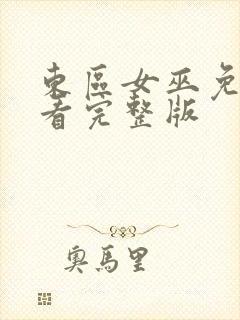 東區女巫免
看完整版
奧馬里